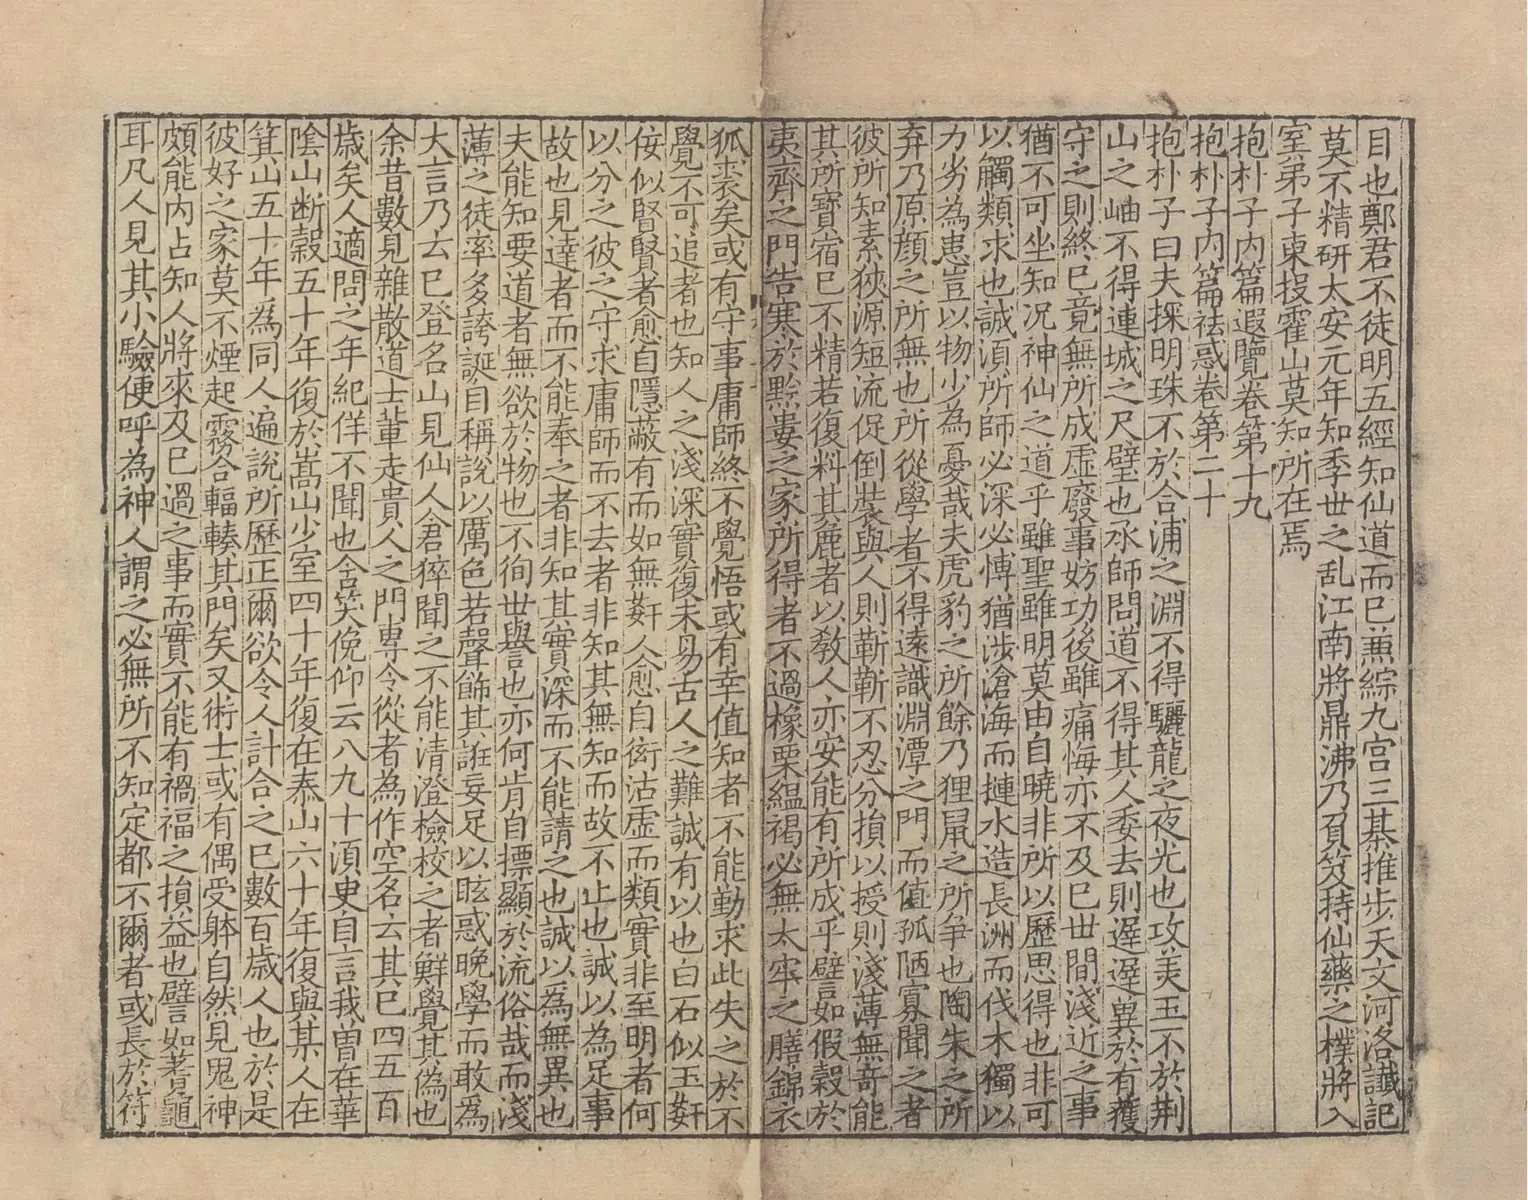 目也鄭君不徒明五經知仙道而已兼綜九宮三棊推步天文河洛讖記
莫不精研太安元年知季世之乱江南將鼎沸乃負笈持仙藥之樸將入
室弟子東投霍山莫知所在焉
抱朴子内篇遐覽卷第十九
抱朴子内篇祛惑卷第二十
抱朴子曰夫探明珠不於合浦之淵不得驪龍之夜光也攻美玉不於荆
山之岫不得連城之尺璧也承師問道不得其人委去則遲遲兾於有獲
守之則終已竟無所成虛廢事妨功後雖痛悔亦不及已世間淺近之事
猶不可坐知况神仙之道乎雖聖雖明莫由自曉非所以歷思得也非可
以觸類求也誠湏所師必深必博猶涉滄海而揰水造長洲而伐木獨以
力劣為患豈以物少為憂哉夫虎豹之所餘乃狸鼠之所争也陶朱之所
弃乃原顔之所無也所從學者不得遠識淵潭之門而值孤陋寡聞之者
彼所知素狹源短流促倒裝與人則靳靳不忍分損以授則淺薄無竒能
其所寶宿已不精若復料其麄者以敎人亦安能有所成乎譬如假穀於
夷齊之門告寒於黔婁之家所得者不過橡栗緼褐必無太牢之膳錦衣
狐裘矣或有守事庸師終不覺悟或有幸值知者不能勤求此失之於不
覺不可追者也知人之淺深實復未易古人之難誠有以也白石似玉姧
佞似賢賢者愈自隱蔽有而如無姧人愈自衒沽虛而類實非至明者何
以分之彼之守求庸師而不去者非知其無知而故不止也誠以為足事
故也見達者而不能奉之者非知其實深而不能請之也誠以為無異也
夫能知要道者無欲於物也不徇世譽也亦何肯自摽顯於流俗哉而淺
薄之徒率多誇誕自稱說以厲色若聲飾其誑妄足以眩惑晚學而敢為
大言乃云已登名山見仙人倉猝聞之不能清澄檢校之者鮮覺其偽也
余昔數見雜散道士輩走貴人之門専令從者為作空名云其已四五百
歲矣人適問之年紀佯不聞也含笑俛仰云八九十湏臾自言我曽在華
隂山断穀五十年復於嵩山少室四十年復在泰山六十年復與某人在
箕山五十年為同人遍說所歷正爾欲令人計合之已數百歲人也於是
彼好之家莫不煙起霧合輻輳其門矣又術士或有偶受躰自然見鬼神
頗能内占知人將來及已過之事而實不能有禍福之損益也譬如蓍龜
耳凡人見其小驗便呼為神人謂之必無所不知定都不爾者或長於符